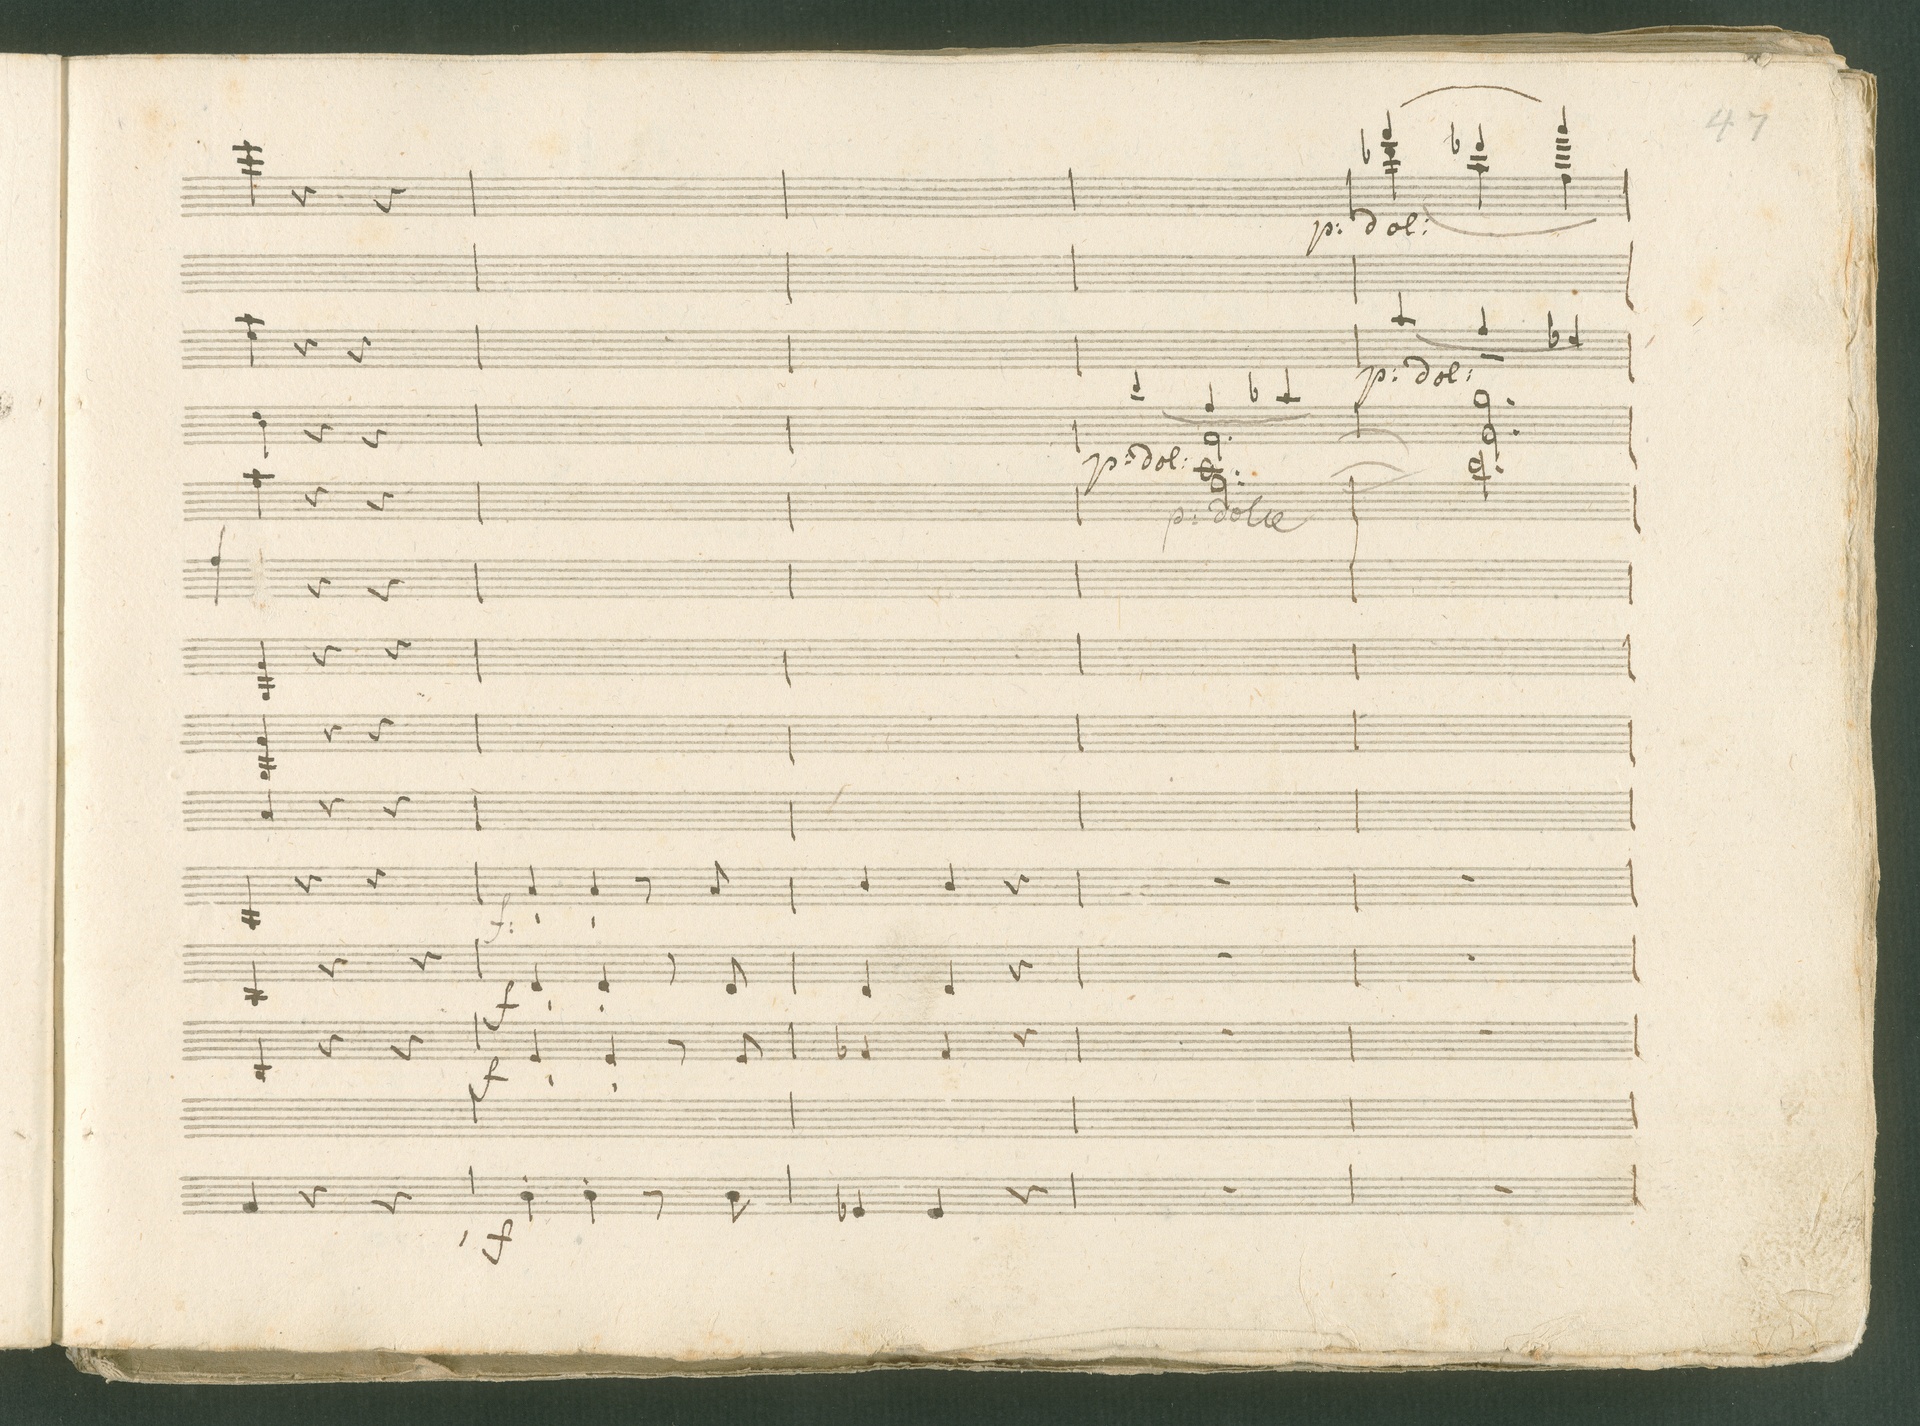 47
p: dol:
p: dol:
p: dol:
p: dolce
f:
f
f
f